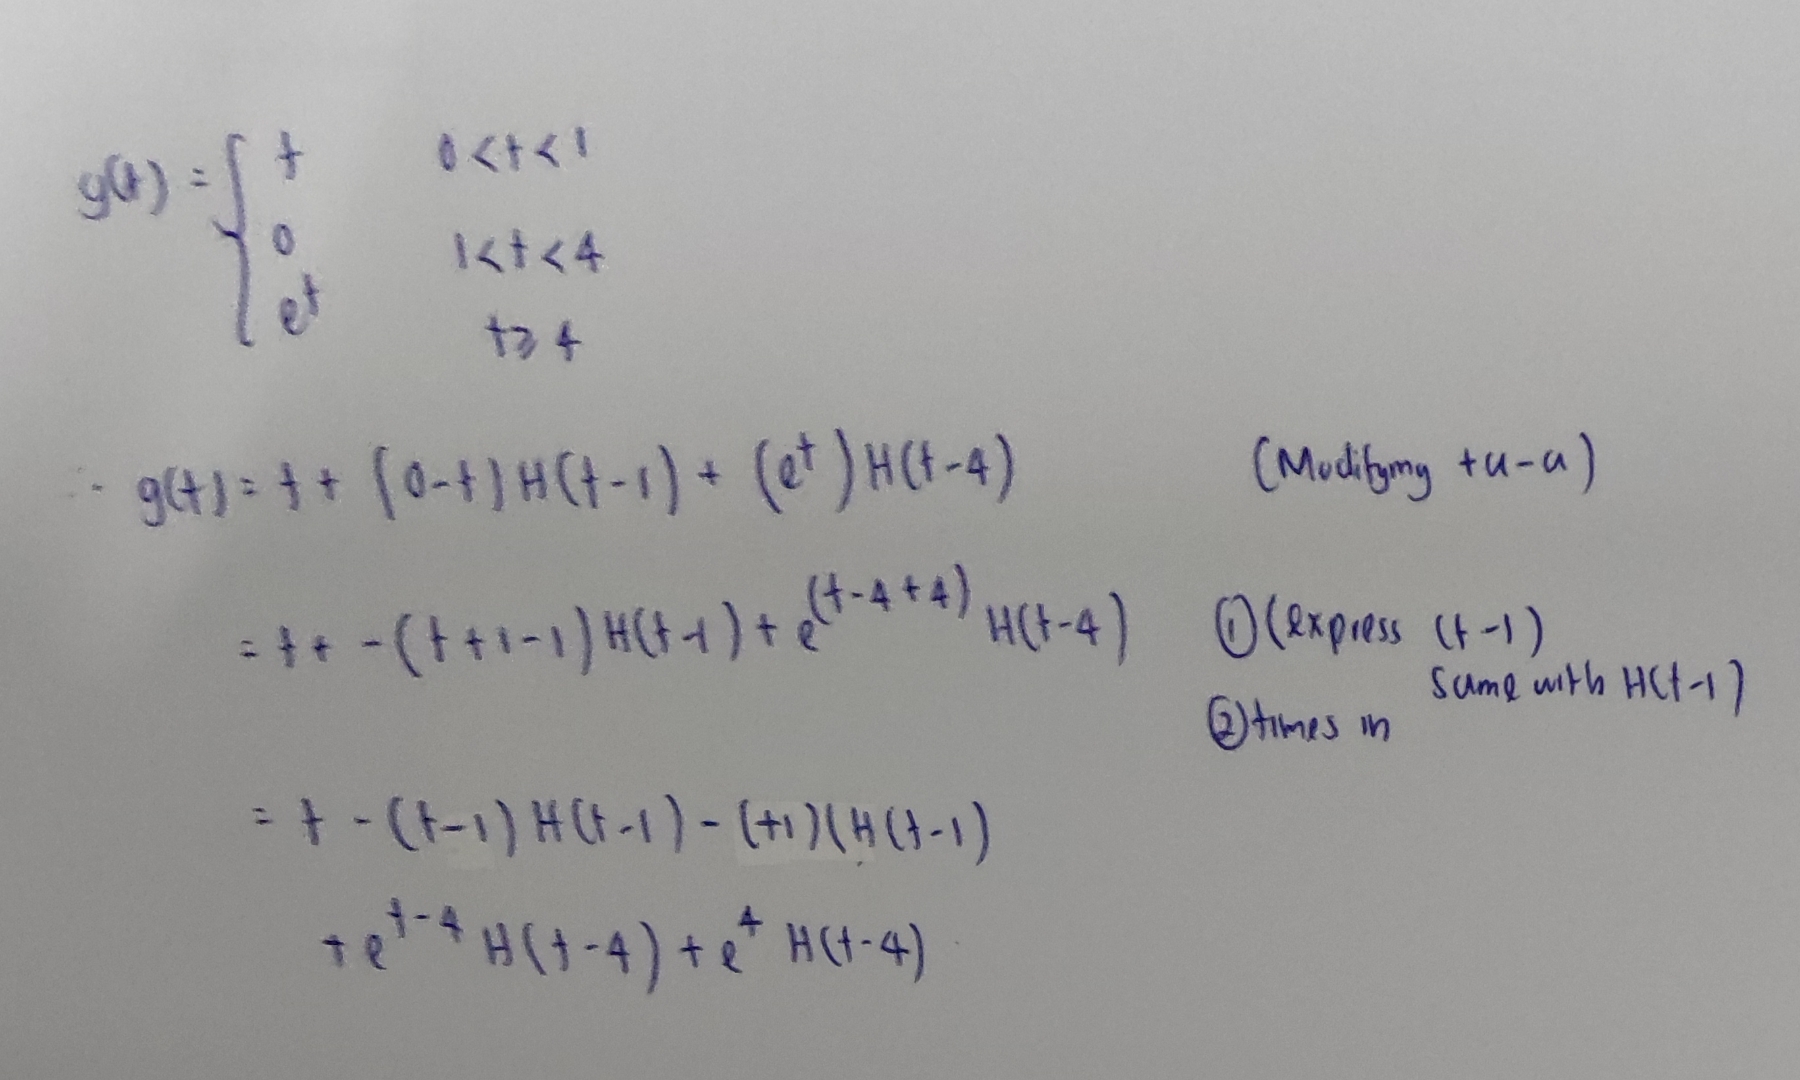 g(t) = { t 0<t<1
0 1<t<4
e^t t⩾4
∴ g(t) = t + (0-t) H(t-1) + (e^t) H(t-4) (Modifying +a-a)
= t + -(t+1-1) H(t-1) + e^(t-4+4) H(t-4) ① (express (t-1)
same with H(t-1)
② times in
= t - (t-1) H(t-1) - (+1)(H(t-1)
+ e^t-4 H(t-4) + e^4 H(t-4)